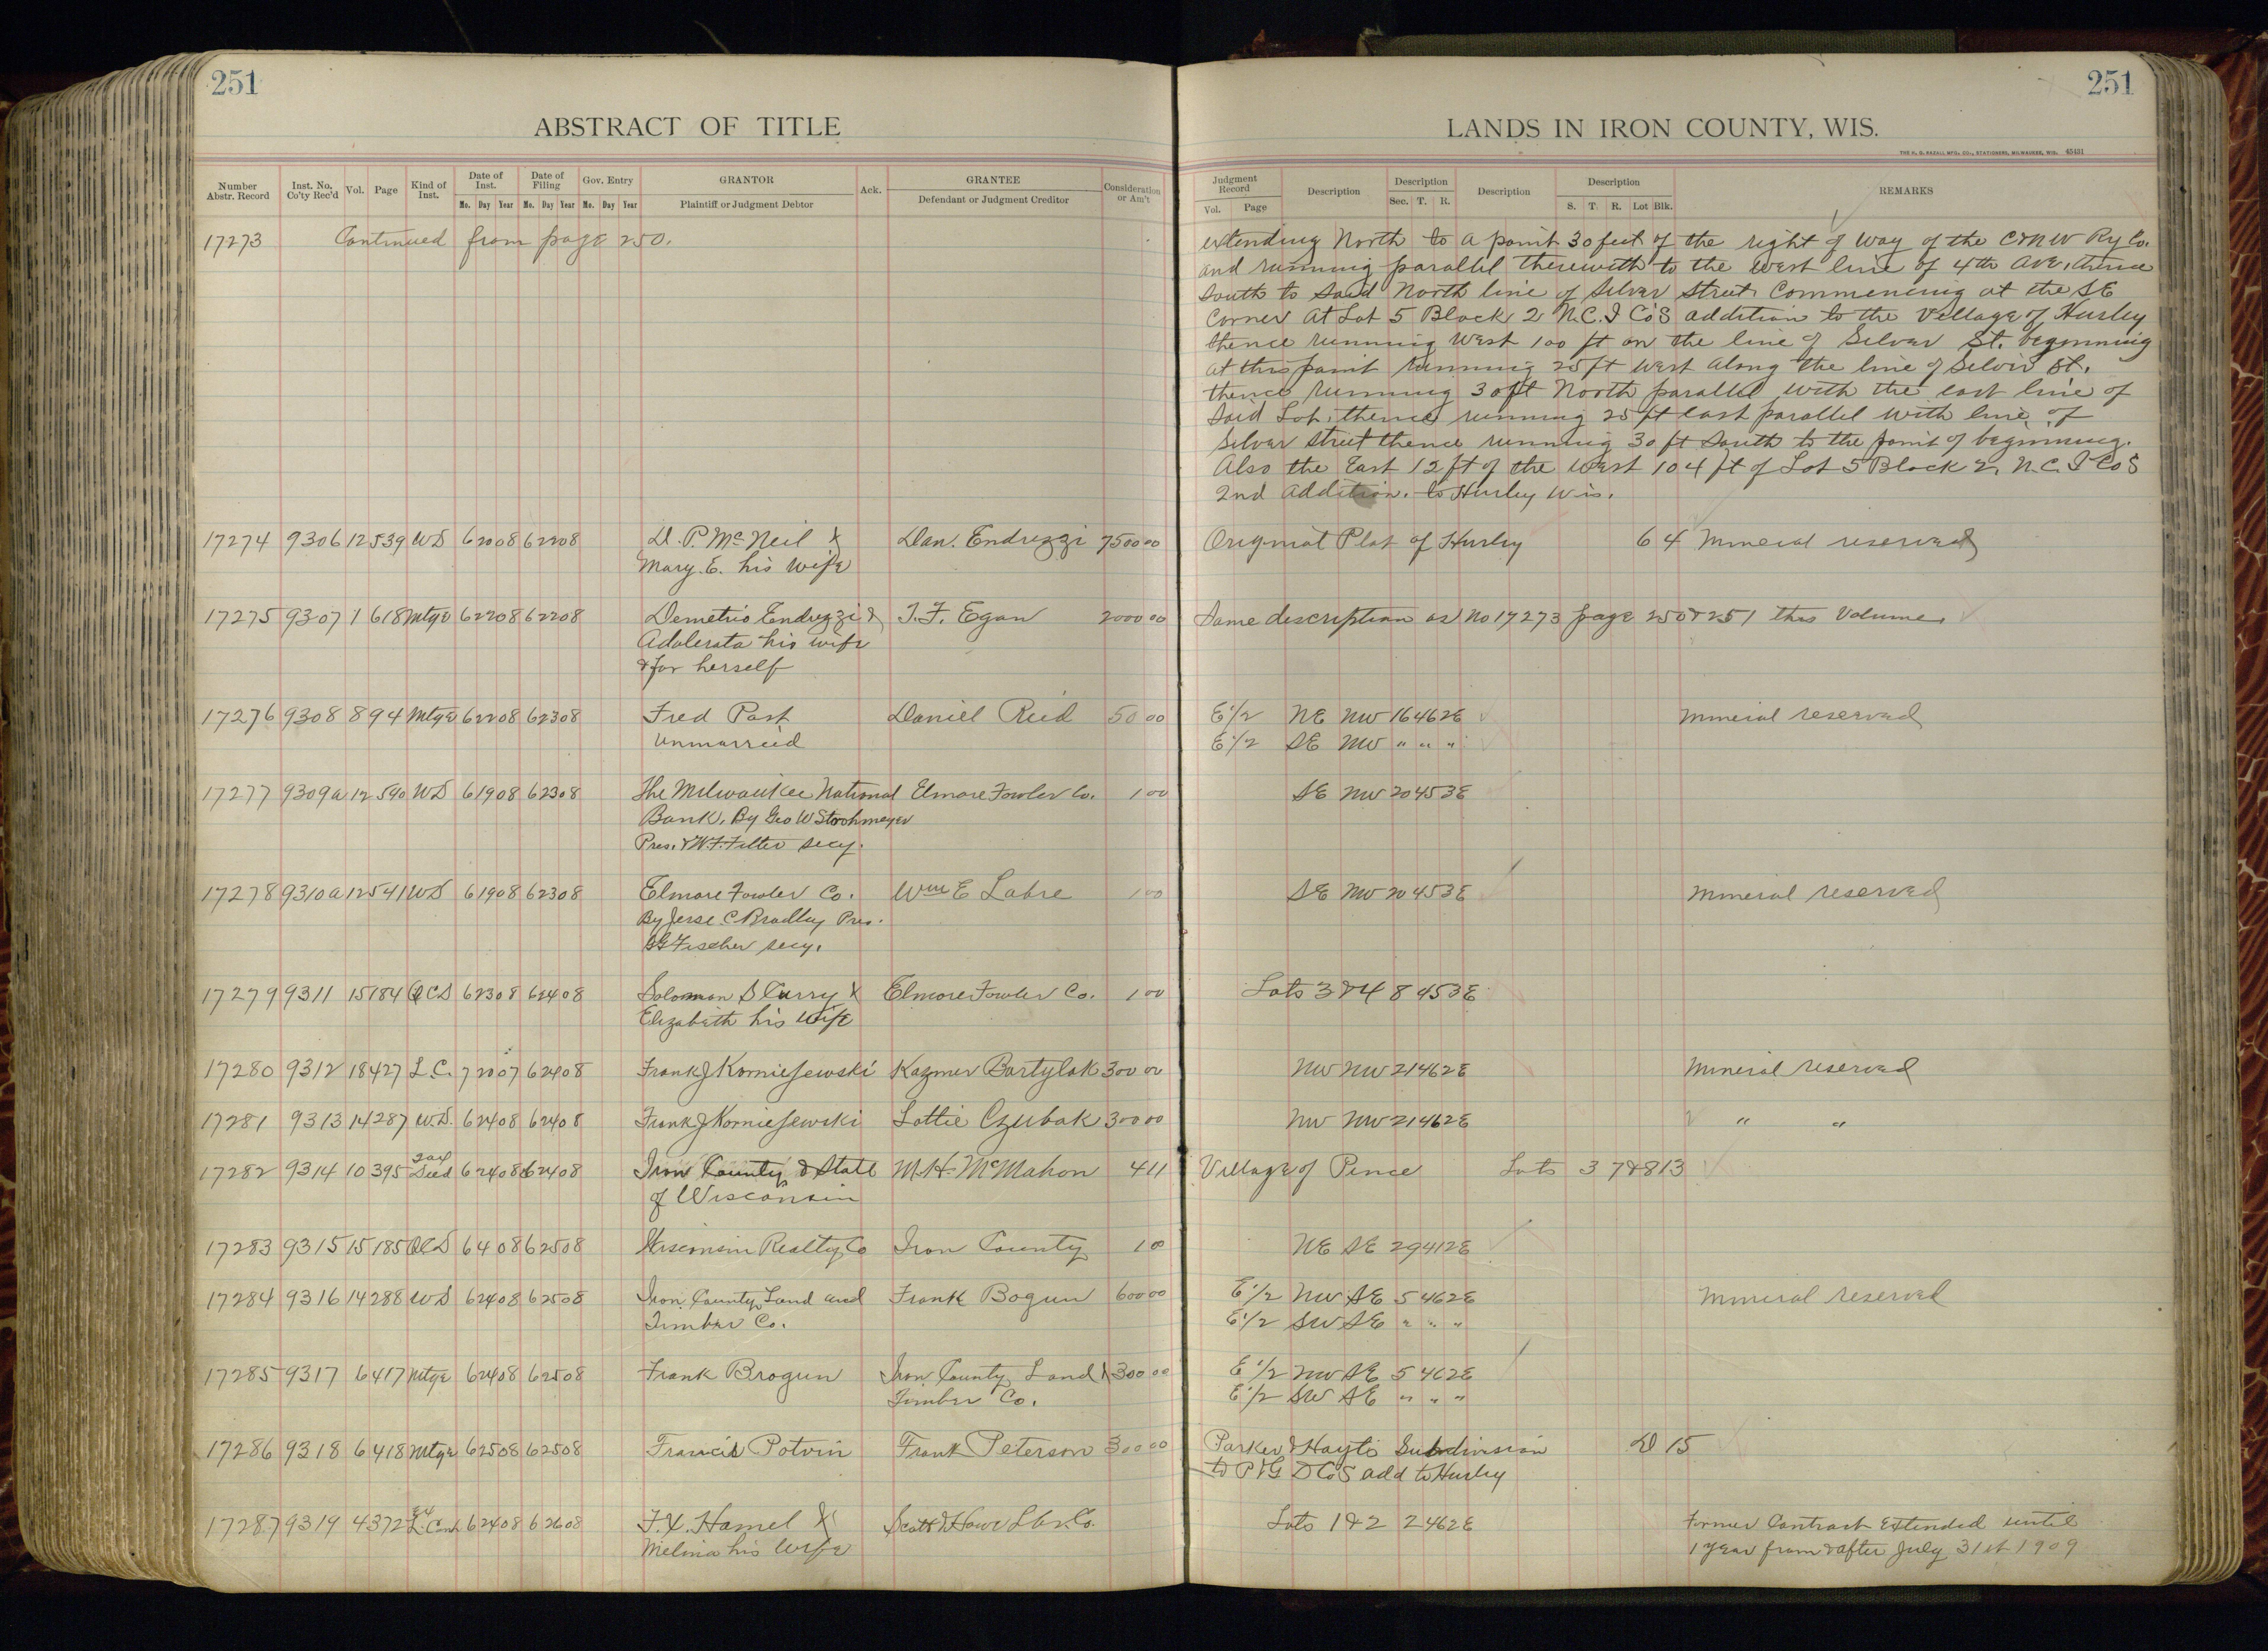 251
ABSTRACT OF TITLE
Number Abstr. Record
Inst. No. Co'ty Rec'd
Vol.
Page
Kind of Inst.
Date of Inst.
Mo. Day Year
Date of Filing
Mo. Day Year
Gov. Entry
Mo. Day Year
GRANTOR
Plaintiff or Judgment Debtor
Ack.
GRANTEE
Defendant or Judgment Creditor
Consideration or Am't
17273 Continued from page 250.
17274 9306 12 539 WD 6 20 08 6 22 08 D. P. McNeil & Dan. Endrizzi 7500 00
Mary. E. his wife
17275 9307 1 618 Mtge 6 22 08 6 22 08 Demetrio Endrizzi & T. F. Egan 2000 00
Adolerata his wife
& for herself
17276 9308 8 94 Mtge 6 22 08 6 23 08 Fred Past Daniel Reid 50 00
Unmarried
17277 9309a 12 540 WD 6 19 08 6 23 08 The Milwaukee National Elmore Fowler Co. 1 00
Bank, By Geo W Strohmeyer
Pres. & W.F. Filter secy.
17278 9310a 12 541 WD 6 19 08 6 23 08 Elmore Fowler Co. Wm E Labre 1 00
By Jesse C Bradley Pres.
Fischer secy.
17279 9311 15 184 QCD 6 23 08 6 24 08 Solomon S Curry & Elmore Fowler Co. 1 00
Elizabeth his wife
17280 9312 18 427 L.C. 7 20 07 6 24 08 Frank J Korniejewski Kazmer Bartylak 300 00
17281 9313 14 287 W.D. 6 24 08 6 24 08 Frank J Korniejewski Lottie Czubak 300 00
17282 9314 10 395 Tax Deed 6 24 08 6 24 08 Iron County & State M. H. McMahon 4 11
of Wisconsin
17283 9315 15 185 QCD 6 4 08 6 25 08 Wisconsin Realty Co Iron County 1 00
17284 9316 14 288 WD 6 24 08 6 25 08 Iron County Land and Frank Bogun 600 00
Timber Co.
17285 9317 6 417 Mtge 6 24 08 6 25 08 Frank Brogun Iron County Land & 300 00
Timber Co.
17286 9318 6 418 Mtge 6 25 08 6 25 08 Francis Potvin Frank Peterson 300 00
17287 9319 4 372 L. Cont 6 24 08 6 26 08 F. X. Hamel & Scott & Howe Lbr. Co.
Melina his wife
251
LANDS IN IRON COUNTY, WIS.
THE H. G. RAZALL MFG. CO., STATIONERS, MILWAUKEE, WIS. 45431
Judgment Record
Vol. Page
Description
Description
Sec. T. R.
Description
Description
S. T. R. Lot Blk.
REMARKS
extending North to a point 30 feet of the right of way of the C & NW Ry Co.
and running parallel therewith to the west line of 4th Ave, thence
South to said North line of Silver Street. Commencing at the SE
Corner at Lot 5 Block 2 N.C.I Co's addition to the Village of Hurley
thence running West 100 ft on the line of Silver St. beginning
at this point running 25 ft West along the line of Silver St.
thence running 30 ft North parallel with the east line of
said Lot, thence running 25 ft east parallel with line of
Silver street thence running 30 ft South to the point of beginning.
Also the East 12 ft of the West 104 ft of Lot 5 Block 2, N.C.I Co S
2nd addition. to Hurley Wis.
Original Plat of Hurley 6 4 Mineral reserved
Same description as No 17273 page 250 & 251 this Volume.
E 1/2 NE NW 16 46 2E Mineral reserved
E 1/2 SE NW " " "
SE NW 20 45 3E
SE NW 20 45 3E Mineral reserved
Lots 3 & 4 8 45 3E
NW NW 21 46 2E Mineral reserved
NW NW 21 46 2E " "
Village of Pence Lots 3 7 & 8 13
NE SE 29 41 2E
E 1/2 NW SE 5 46 2E Mineral reserved
E 1/2 SW SE " " "
E 1/2 NW SE 5 46 2E
E 1/2 SW SE " " "
Parker & Hayti Subdivision D 15
to P & G D Co S add to Hurley
Lots 1 & 2 2 46 2E Former Contract Extended until
1 year from & after July 31st 1909